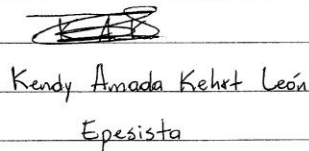 Kendy Amada Kehrt León
Epesista